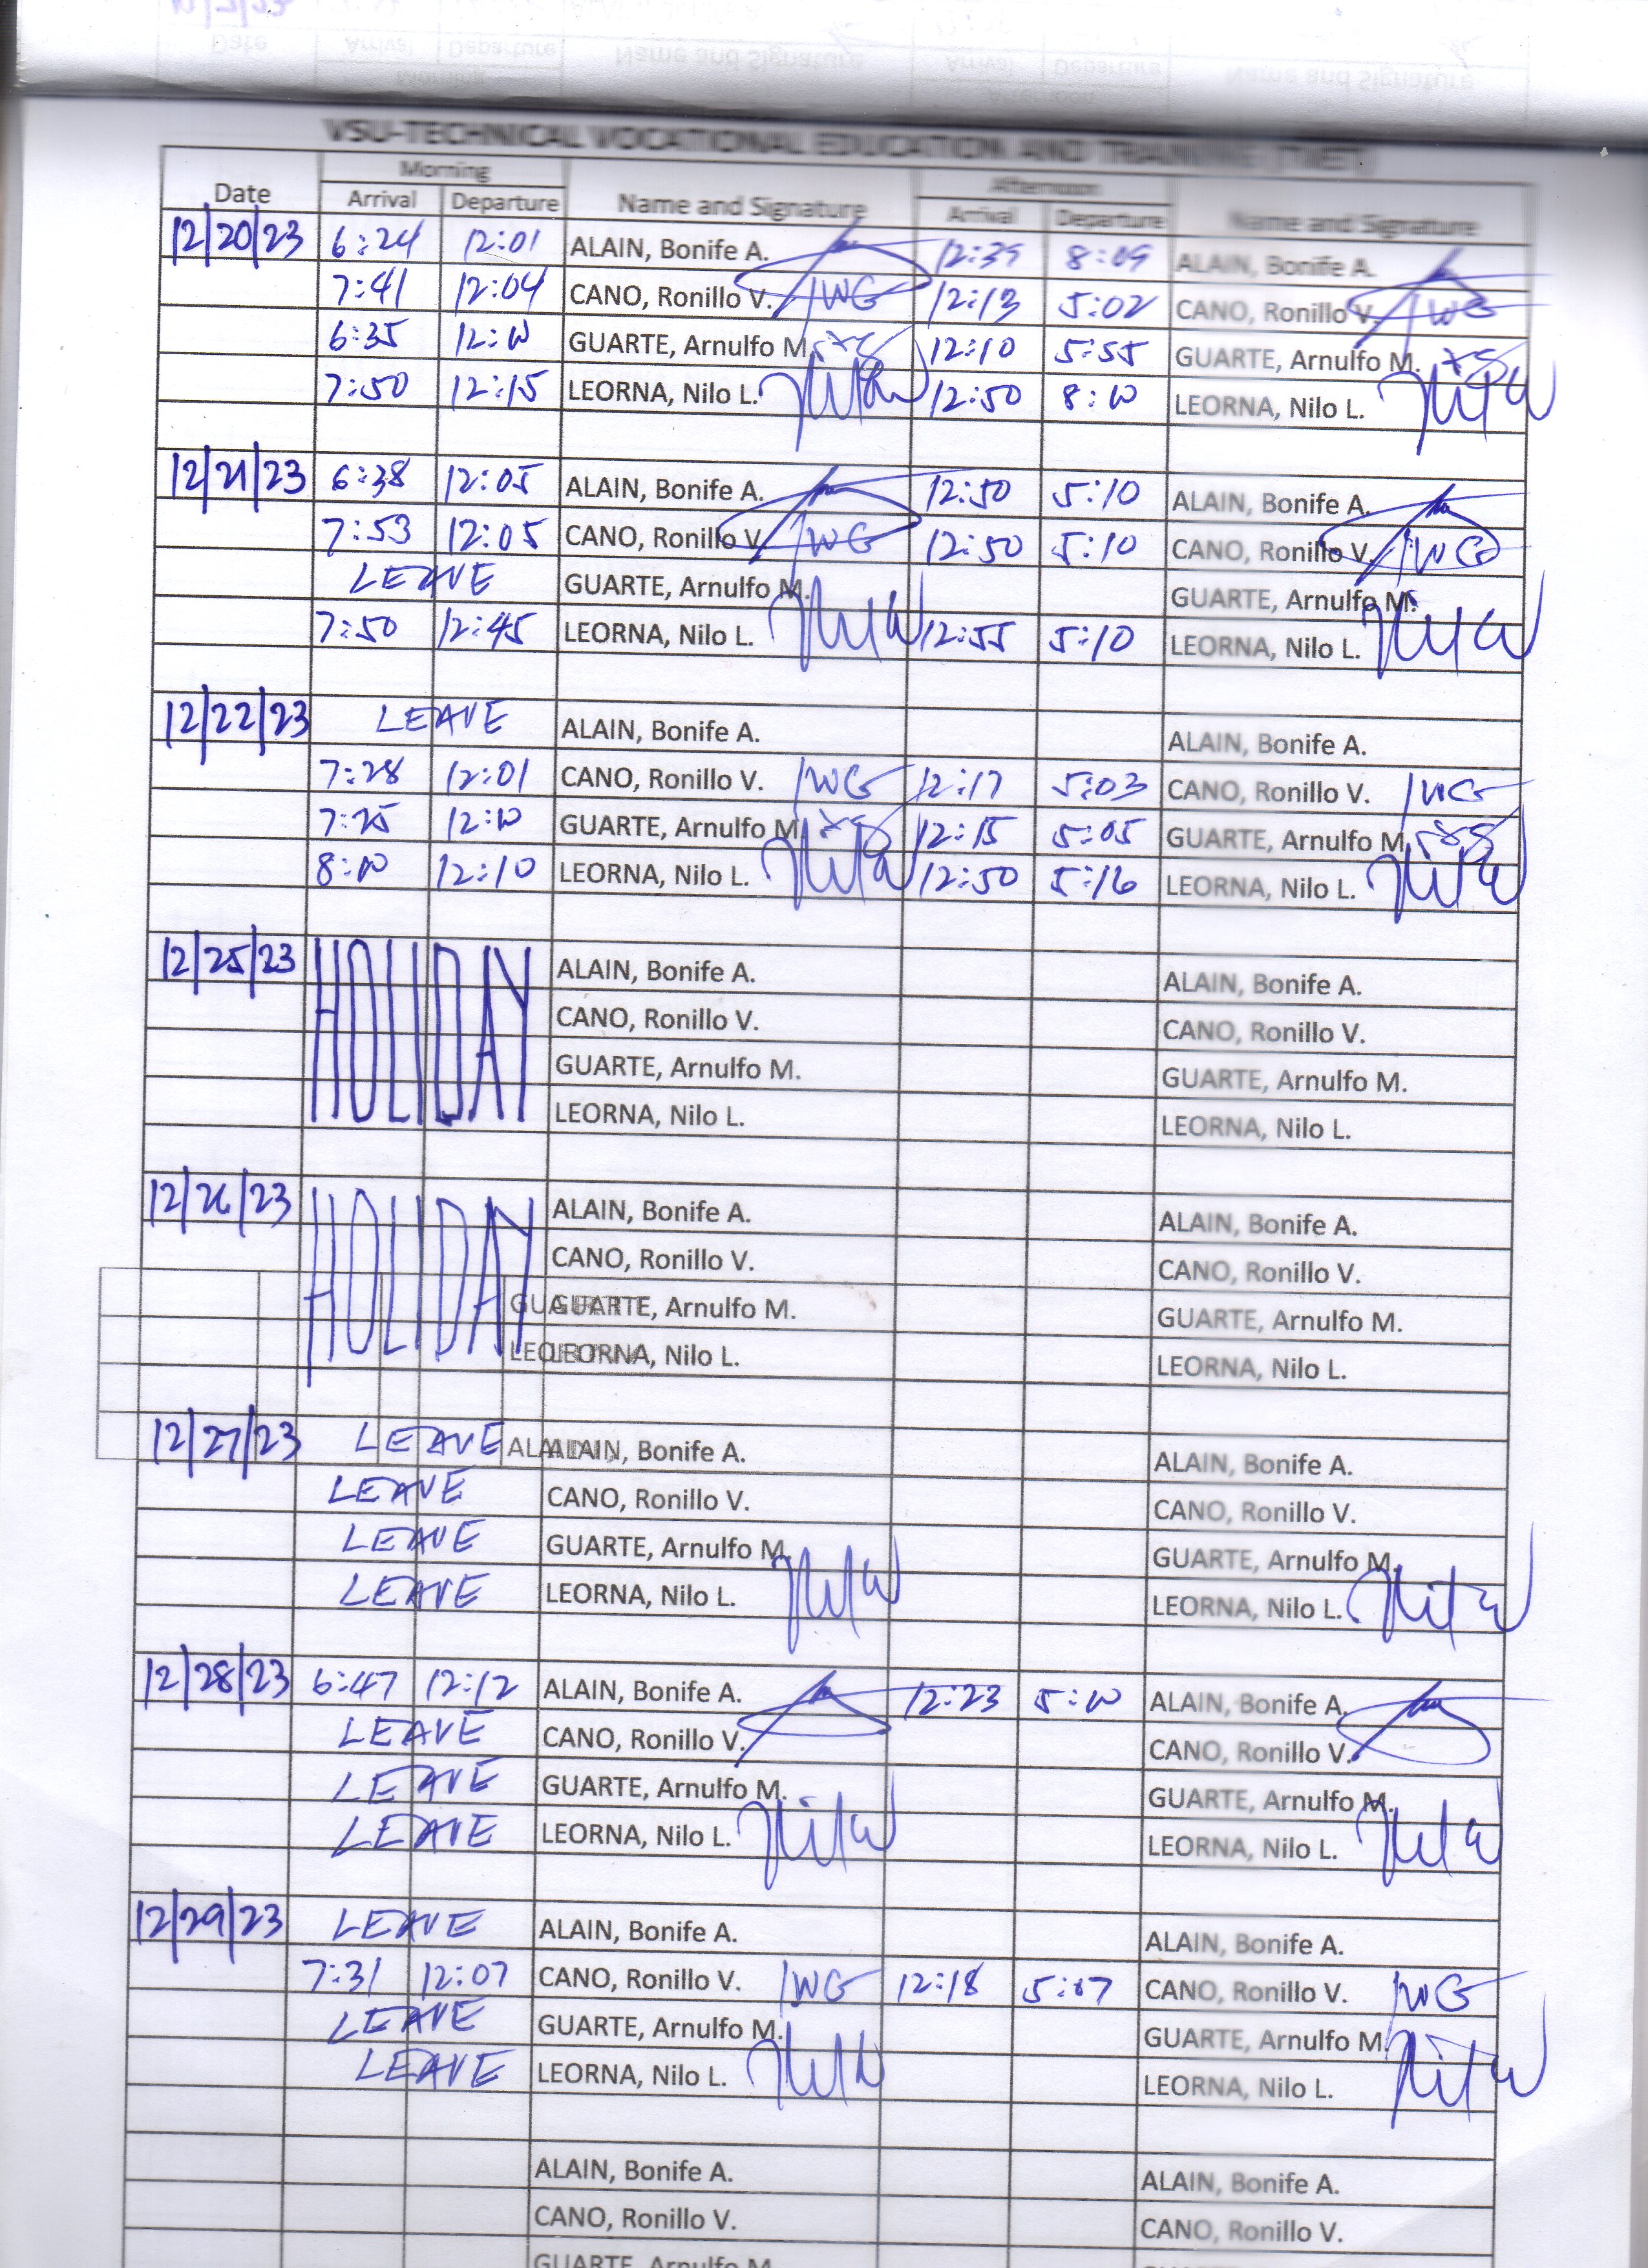 VSU-TECHNICAL VOCATIONAL EDUCATION AND TRAINING (TVET)
Date Morning Name and Signature Afternoon Name and Signature
Arrival Departure Arrival Departure
12/20/23 6:24 12:01 ALAIN, Bonife A. 12:39 8:09 ALAIN, Bonife A.
7:41 12:04 CANO, Ronillo V. 12:13 5:02 CANO, Ronillo V.
6:35 12:10 GUARTE, Arnulfo M. 12:10 5:55 GUARTE, Arnulfo M.
7:50 12:15 LEORNA, Nilo L. 12:50 8:10 LEORNA, Nilo L.
12/21/23 6:38 12:05 ALAIN, Bonife A. 12:50 5:10 ALAIN, Bonife A.
7:53 12:05 CANO, Ronillo V. 12:50 5:10 CANO, Ronillo V.
LEAVE GUARTE, Arnulfo M. GUARTE, Arnulfo M.
7:50 12:45 LEORNA, Nilo L. 12:55 5:10 LEORNA, Nilo L.
12/22/23 LEAVE ALAIN, Bonife A. ALAIN, Bonife A.
7:28 12:01 CANO, Ronillo V. 12:17 5:03 CANO, Ronillo V.
7:25 12:10 GUARTE, Arnulfo M. 12:15 5:05 GUARTE, Arnulfo M.
8:00 12:10 LEORNA, Nilo L. 12:50 5:16 LEORNA, Nilo L.
12/25/23 HOLIDAY ALAIN, Bonife A. ALAIN, Bonife A.
CANO, Ronillo V. CANO, Ronillo V.
GUARTE, Arnulfo M. GUARTE, Arnulfo M.
LEORNA, Nilo L. LEORNA, Nilo L.
12/26/23 HOLIDAY ALAIN, Bonife A. ALAIN, Bonife A.
CANO, Ronillo V. CANO, Ronillo V.
GUARTE, Arnulfo M. GUARTE, Arnulfo M.
LEORNA, Nilo L. LEORNA, Nilo L.
12/27/23 LEAVE ALAIN, Bonife A. ALAIN, Bonife A.
LEAVE CANO, Ronillo V. CANO, Ronillo V.
LEAVE GUARTE, Arnulfo M. GUARTE, Arnulfo M.
LEAVE LEORNA, Nilo L. LEORNA, Nilo L.
12/28/23 6:47 12:12 ALAIN, Bonife A. 12:23 5:10 ALAIN, Bonife A.
LEAVE CANO, Ronillo V. CANO, Ronillo V.
LEAVE GUARTE, Arnulfo M. GUARTE, Arnulfo M.
LEAVE LEORNA, Nilo L. LEORNA, Nilo L.
12/29/23 LEAVE ALAIN, Bonife A. ALAIN, Bonife A.
7:31 12:07 CANO, Ronillo V. 12:18 5:07 CANO, Ronillo V.
LEAVE GUARTE, Arnulfo M. GUARTE, Arnulfo M.
LEAVE LEORNA, Nilo L. LEORNA, Nilo L.
ALAIN, Bonife A. ALAIN, Bonife A.
CANO, Ronillo V. CANO, Ronillo V.
GUARTE, Arnulfo M.